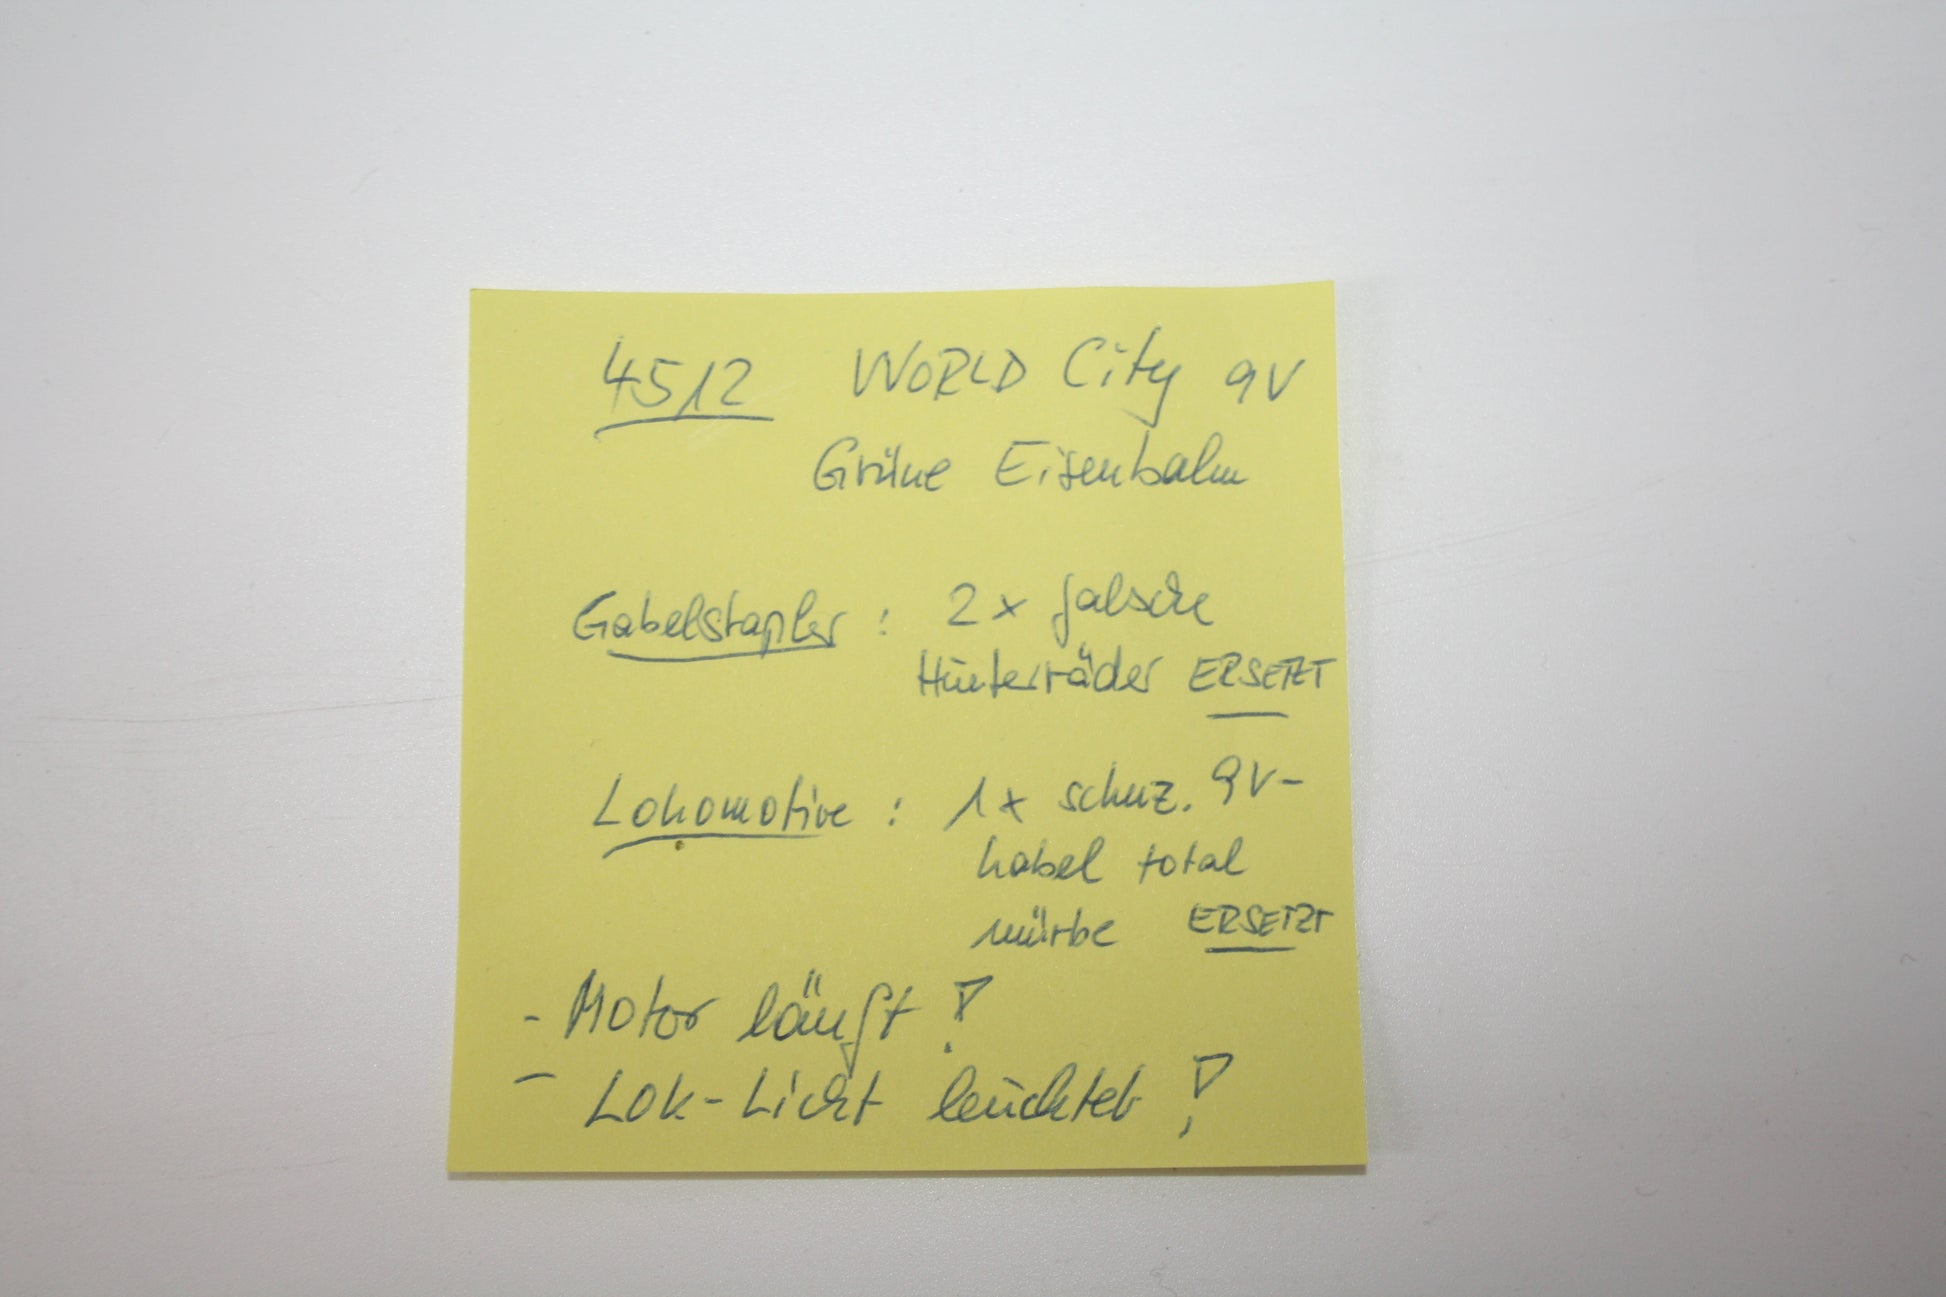 4512 WORLD City 9V
Grüne Eisenbahn
Gabelstapler : 2x falsche
Hinterräder ERSETZT
Lokomotive : 1x schwz. 9V-
kabel total
mürbe ERSETZT
- Motor läuft !
- Lok-Licht leuchtet !